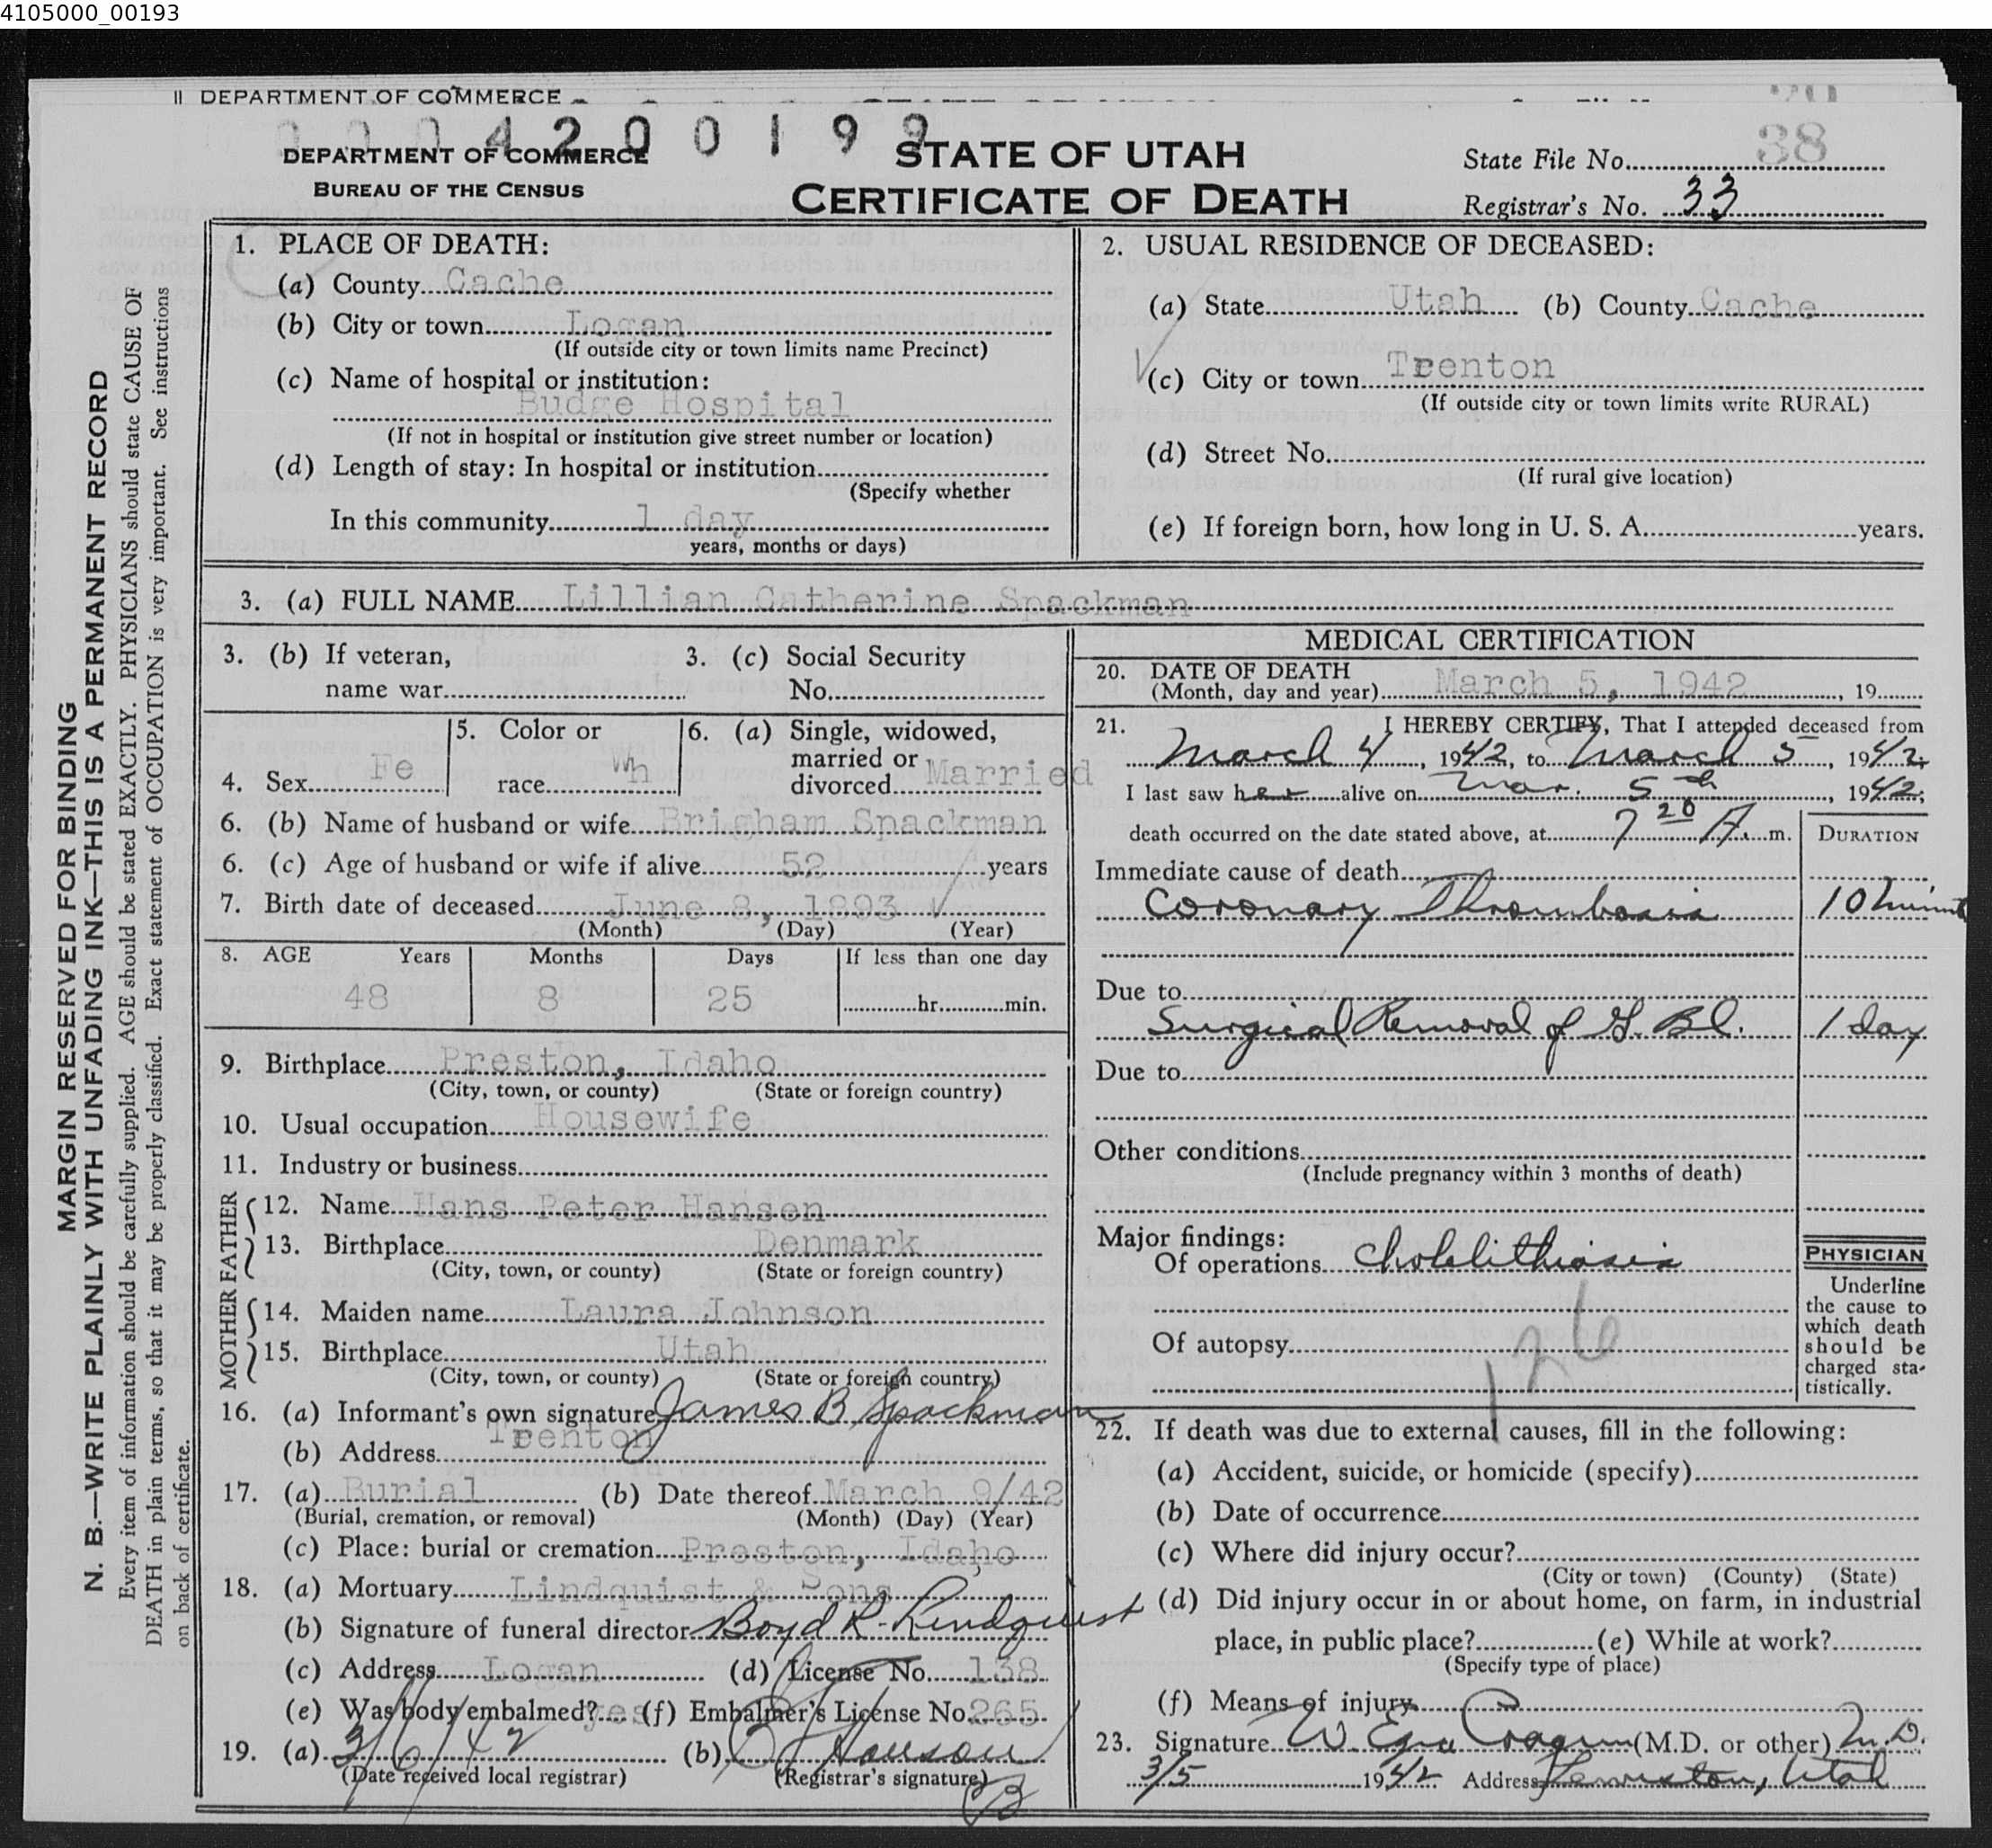 4105000_00193
II DEPARTMENT OF COMMERCE
4200199
DEPARTMENT OF COMMERCE
BUREAU OF THE CENSUS
STATE OF UTAH
CERTIFICATE OF DEATH
State File No. 38
Registrar's No. 33
MARGIN RESERVED FOR BINDING
N. B.—WRITE PLAINLY WITH UNFADING INK—THIS IS A PERMANENT RECORD
Every item of information should be carefully supplied. AGE should be stated EXACTLY. PHYSICIANS should state CAUSE OF
DEATH in plain terms, so that it may be properly classified. Exact statement of OCCUPATION is very important. See instructions
on back of certificate.
1. PLACE OF DEATH:
(a) County Cache
(b) City or town Logan
(If outside city or town limits name Precinct)
(c) Name of hospital or institution:
Budge Hospital
(If not in hospital or institution give street number or location)
(d) Length of stay: In hospital or institution
(Specify whether
In this community 1 day
years, months or days)
2. USUAL RESIDENCE OF DECEASED:
(a) State Utah (b) County Cache
(c) City or town Trenton
(If outside city or town limits write RURAL)
(d) Street No.
(If rural give location)
(e) If foreign born, how long in U. S. A. years.
3. (a) FULL NAME Lillian Catherine Spackman
3. (b) If veteran,
name war
3. (c) Social Security
No.
4. Sex Fe
5. Color or
race Wh
6. (a) Single, widowed,
married or
divorced Married
6. (b) Name of husband or wife Brigham Spackman
6. (c) Age of husband or wife if alive 52 years
7. Birth date of deceased June 8, 1893
(Month) (Day) (Year)
8. AGE Years Months Days If less than one day
48 8 25 hr. min.
9. Birthplace Preston, Idaho
(City, town, or county) (State or foreign country)
10. Usual occupation Housewife
11. Industry or business
FATHER
12. Name Hans Peter Hansen
13. Birthplace Denmark
(City, town, or county) (State or foreign country)
MOTHER
14. Maiden name Laura Johnson
15. Birthplace Utah
(City, town, or county) (State or foreign country)
16. (a) Informant's own signature James B Spackman
(b) Address Trenton
17. (a) Burial (b) Date thereof March 9/42
(Burial, cremation, or removal) (Month) (Day) (Year)
(c) Place: burial or cremation Preston, Idaho
18. (a) Mortuary Lindquist & Sons
(b) Signature of funeral director Boyd R. Lindquist
(c) Address Logan (d) License No. 138
(e) Was body embalmed? yes (f) Embalmer's License No. 265
19. (a) 3/6/42 (b)
(Date received local registrar) (Registrar's signature)
MEDICAL CERTIFICATION
20. DATE OF DEATH
(Month, day and year) March 5, 1942, 19
21. I HEREBY CERTIFY, That I attended deceased from
March 4, 1942, to March 5, 1942;
I last saw her alive on Mar. 5th, 1942;
death occurred on the date stated above, at 7 20 A. m.
DURATION
Immediate cause of death
Coronary Thrombosis 10 minut
Due to
Surgical Removal of G. Bl. 1 day
Due to
Other conditions
(Include pregnancy within 3 months of death)
Major findings:
Of operations Cholelithiasis
Of autopsy
126
PHYSICIAN
Underline
the cause to
which death
should be
charged sta-
tistically.
22. If death was due to external causes, fill in the following:
(a) Accident, suicide, or homicide (specify)
(b) Date of occurrence
(c) Where did injury occur?
(City or town) (County) (State)
(d) Did injury occur in or about home, on farm, in industrial
place, in public place? (e) While at work?
(Specify type of place)
(f) Means of injury
23. Signature W. Ezra Cragun (M.D. or other) M.D.
3/5 1942 Address Lewiston, Utah